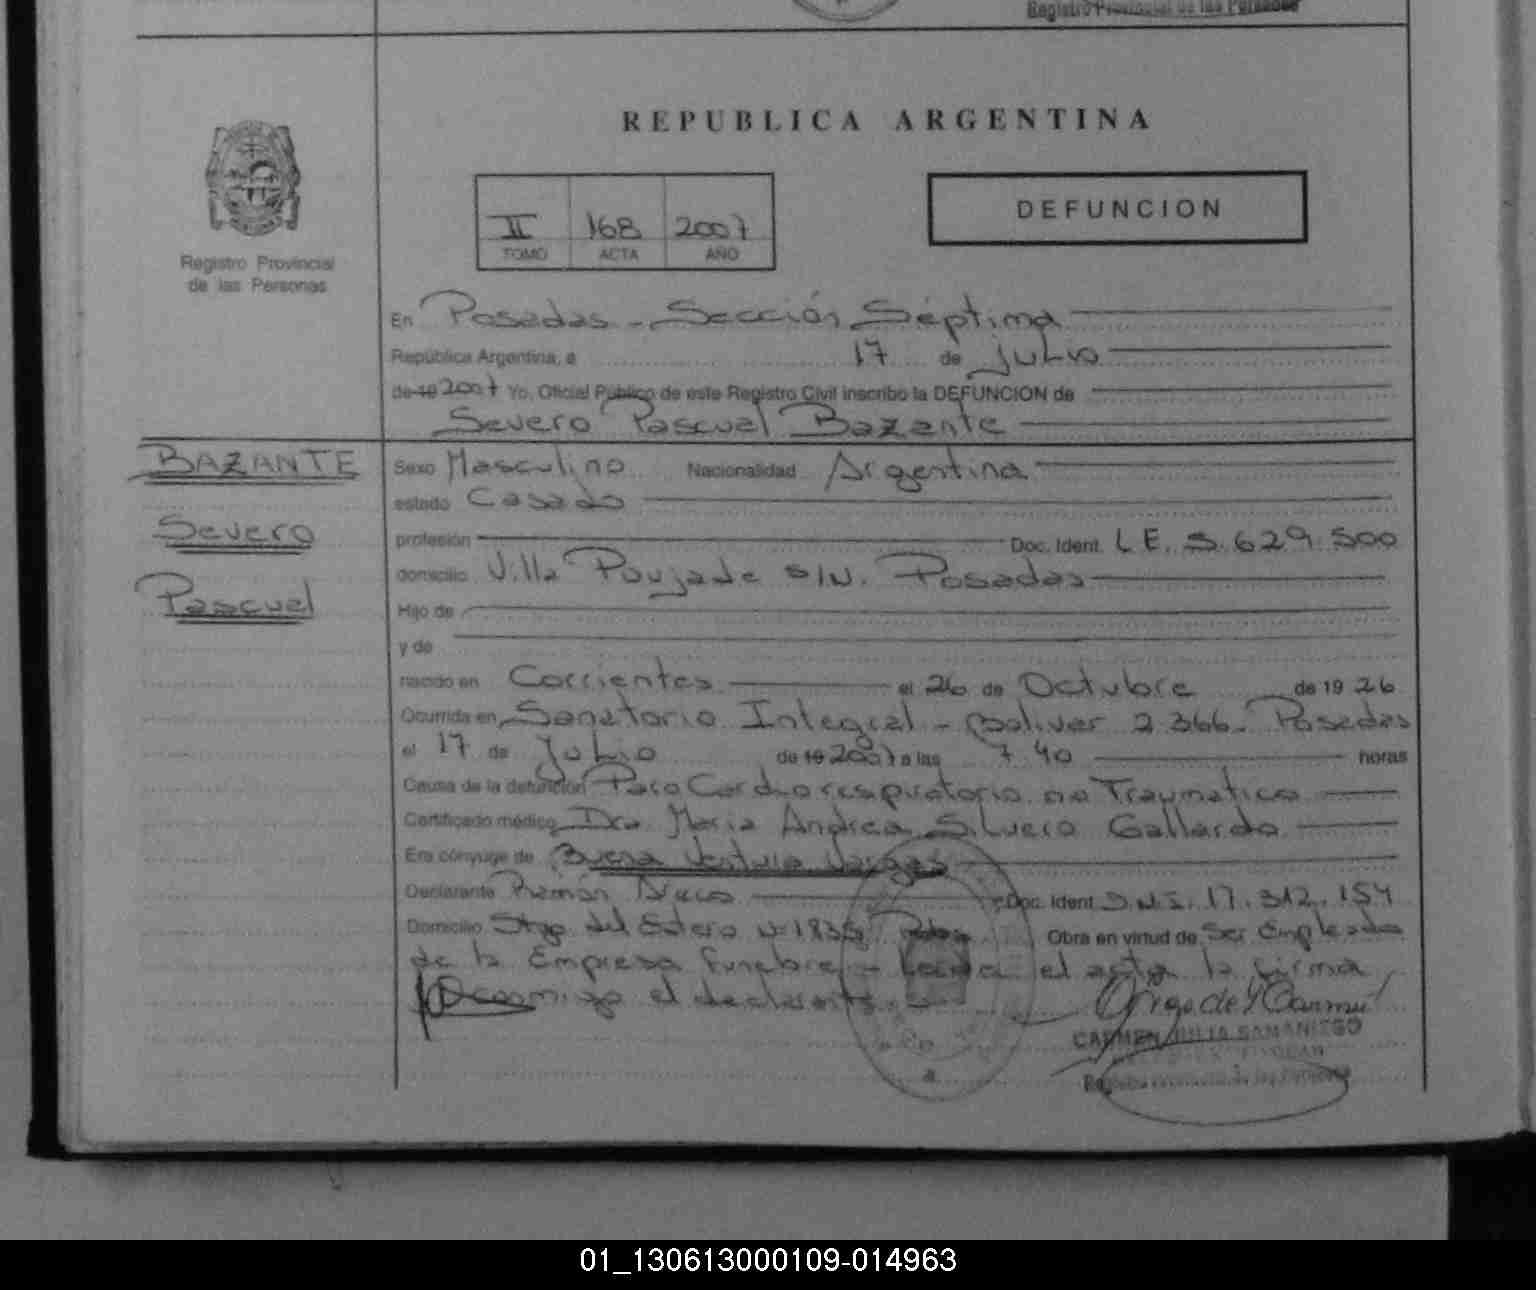 Registro Provincial de las Personas
REPUBLICA ARGENTINA
II 168 2007
TOMO ACTA AÑO
DEFUNCION
Registro Provincial
de las Personas
En Posadas - Sección Séptima
República Argentina, a 17 de julio
de 19 2007 Yo, Oficial Público de este Registro Civil inscribo la DEFUNCION de
Severo Pascual Bazante
BAZANTE
Severo
Pascual
Sexo Masculino Nacionalidad Argentina
estado Casado
profesión Doc. Ident. L.E. 5.629.500
domicilio Villa Poujade s/N. Posadas
Hijo de
y de
nacido en Corrientes el 26 de Octubre de 19 26
Ocurrida en Sanatorio Integral - Bolivar 2.366 - Posadas
el 17 de Julio de 19 2007 a las 7 40 horas
Causa de la defunción Paro Cardiorespiratorio no Traumatico
Certificado médico Dra Maria Andrea Silvero Gallardo
Era cónyuge de Buena Ventura Vargas
Declarante Ramón Doc. Ident. D.N.I. 17.312.154
Domicilio Stgo del Estero Nº 1835 Pdas Obra en virtud de Ser Empleado
de la Empresa funebre - Leida el acta la firma
el declarante
CARMEN JULIA SAMANIEGO
01_130613000109-014963